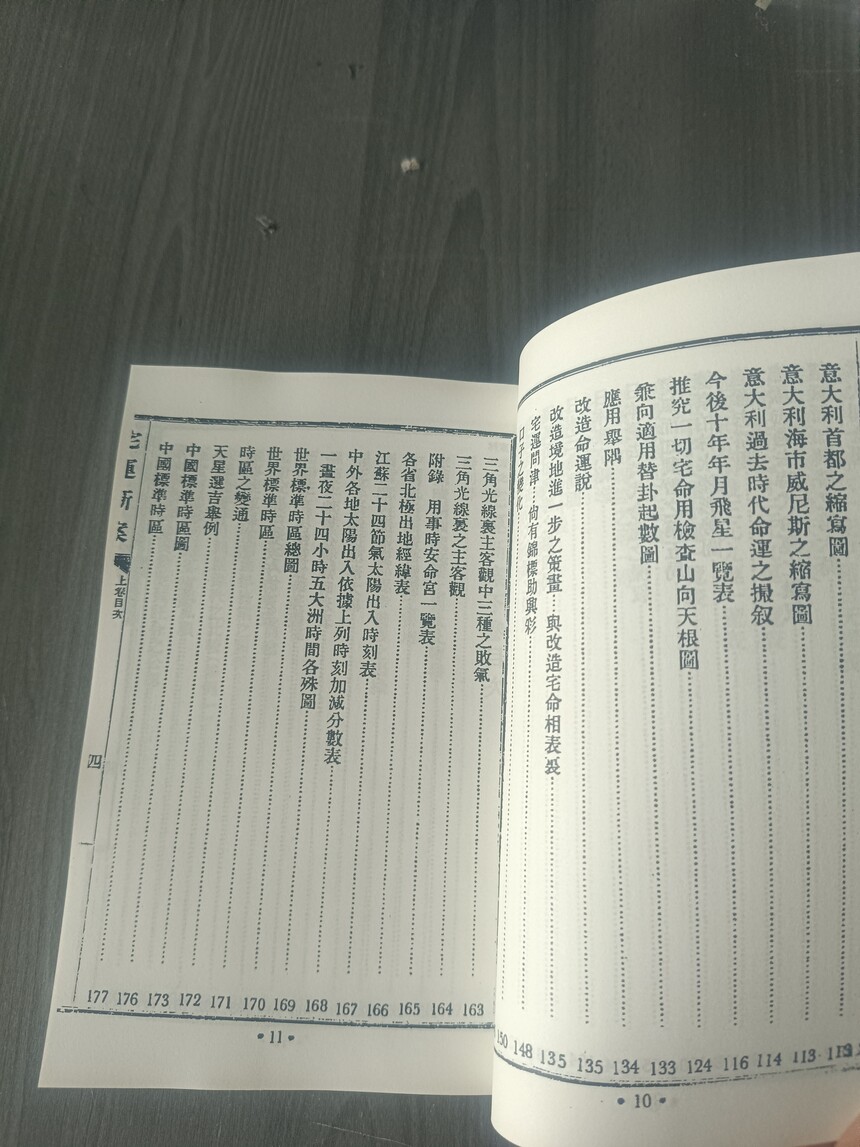 意大利首都之縮寫圖
意大利海市威尼斯之縮寫圖…113
意大利過去時代命運之撮叙…114
今後十年年月飛星一覽表…116
推究一切宅命用檢查山向天根圖…124
兼向適用替卦起數圖…133
應用舉隅…134
改造命運說…135
改造境地進一步之策畫…與改造宅命相表裏…135
宅運問津…尚有錦標助興彩…148
口子之變化…150
•10•
三角光線裏主客觀中三種之敗氣…163
三角光線裏之主客觀…164
附錄 用事時安命宮一覽表…165
各省北極出地經緯表…166
江蘇二十四節氣太陽出入時刻表…167
中外各地太陽出入依據上列時刻加減分數表…168
一晝夜二十四小時五大洲時間各殊圖…169
世界標準時區總圖…170
世界標準時區…171
時區之變通…172
天星選吉舉例…173
中國標準時區圖…176
中國標準時區…177
宅運新案 上卷目次 四
•11•